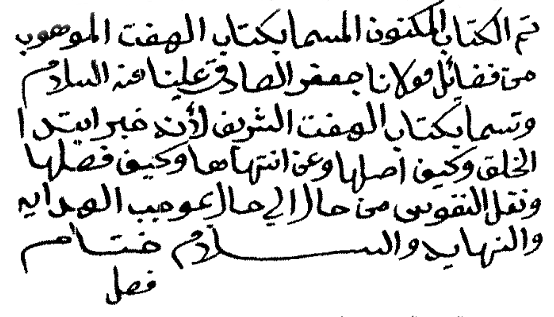 تم الكتاب المكنون المسما بكتاب الهفت الموهوب
من فضائل مولانا جعفر الصادق علينا منه السلام
وتسما بكتاب الهفت الشريف لأنه خبر ابتدا
الخلق وكيف اصلها وعن انتهاها وكيف فصلها
ونقل النفوس من حال الي حال بموجب الهدايه
والنهايه والسلام ختام
فصل